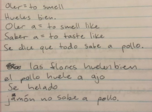 Oler = to smell
Hueles bien.
Oler a = to smell like
Saber a = to taste like
Se dice que todo sabe a pollo.
las flores huelen bien
el pollo huele a ajo
Se helado
jamón no sabe a pollo.